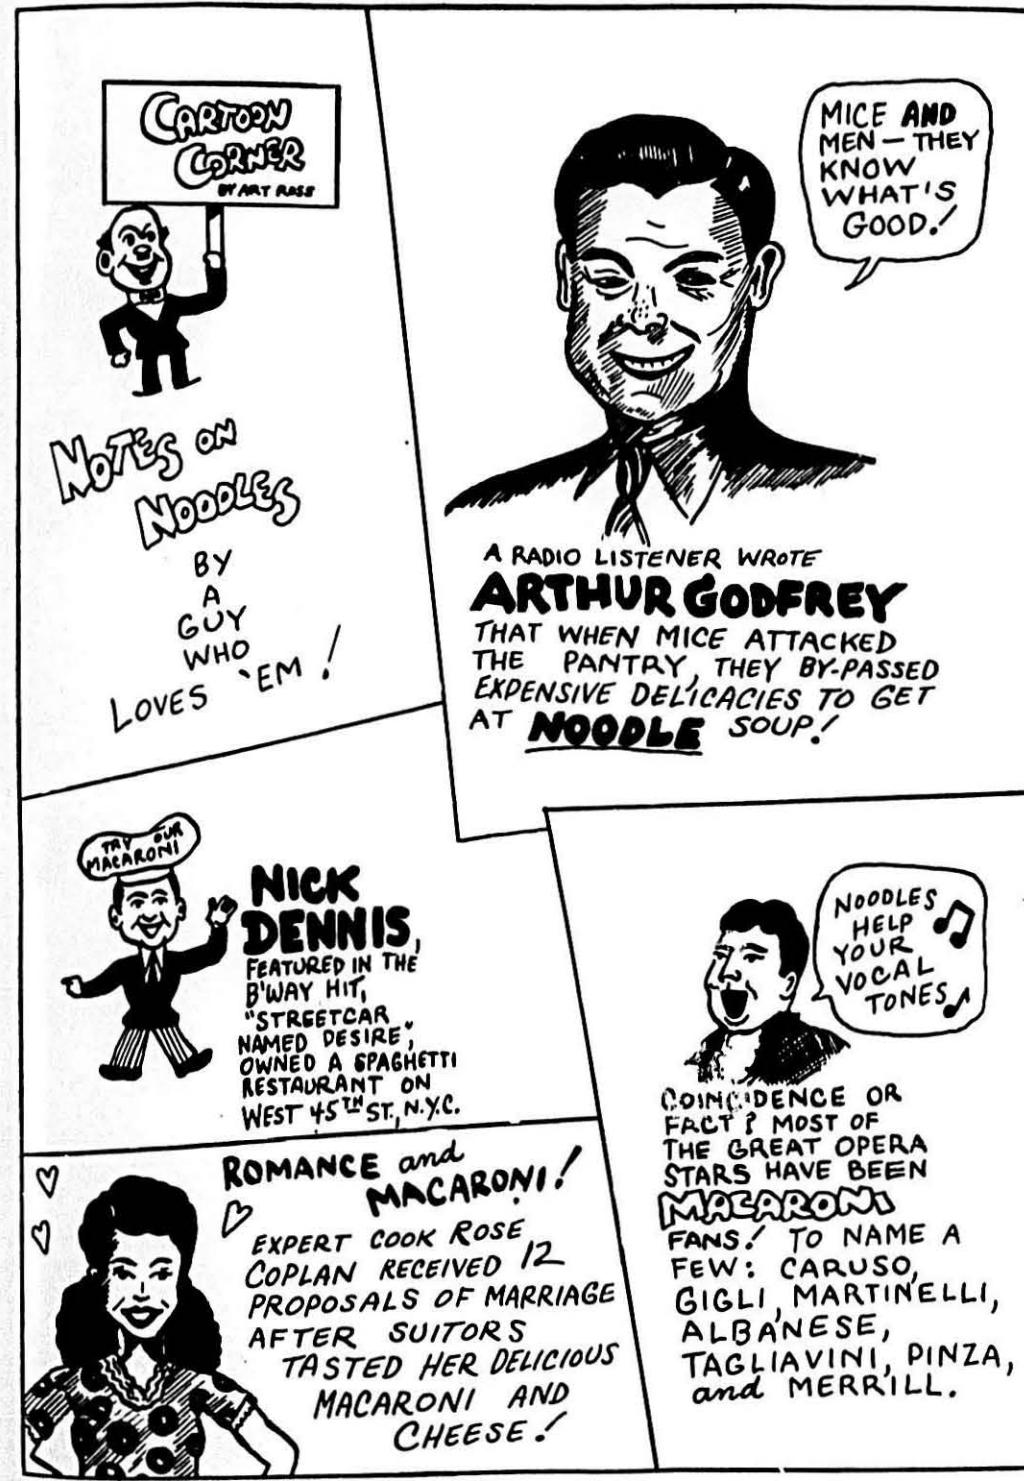 CARTOON
CORNER
BY ART ROSS
NOTES ON
NOODLES
BY
A
GUY
WHO
LOVES 'EM!
MICE AND
MEN — THEY
KNOW
WHAT'S
GOOD!
A RADIO LISTENER WROTE
ARTHUR GODFREY
THAT WHEN MICE ATTACKED
THE PANTRY, THEY BY-PASSED
EXPENSIVE DELICACIES TO GET
AT NOODLE SOUP!
TRY OUR
MACARONI
NICK
DENNIS,
FEATURED IN THE
B'WAY HIT,
"STREETCAR
NAMED DESIRE",
OWNED A SPAGHETTI
RESTAURANT ON
WEST 45TH ST., N.Y.C.
NOODLES
HELP
YOUR
VOCAL
TONES
COINCIDENCE OR
FACT? MOST OF
THE GREAT OPERA
STARS HAVE BEEN
MACARONI
FANS! TO NAME A
FEW: CARUSO,
GIGLI, MARTINELLI,
ALBANESE,
TAGLIAVINI, PINZA,
and MERRILL.
ROMANCE and
MACARONI!
EXPERT COOK ROSE
COPLAN RECEIVED 12
PROPOSALS OF MARRIAGE
AFTER SUITORS
TASTED HER DELICIOUS
MACARONI AND
CHEESE!